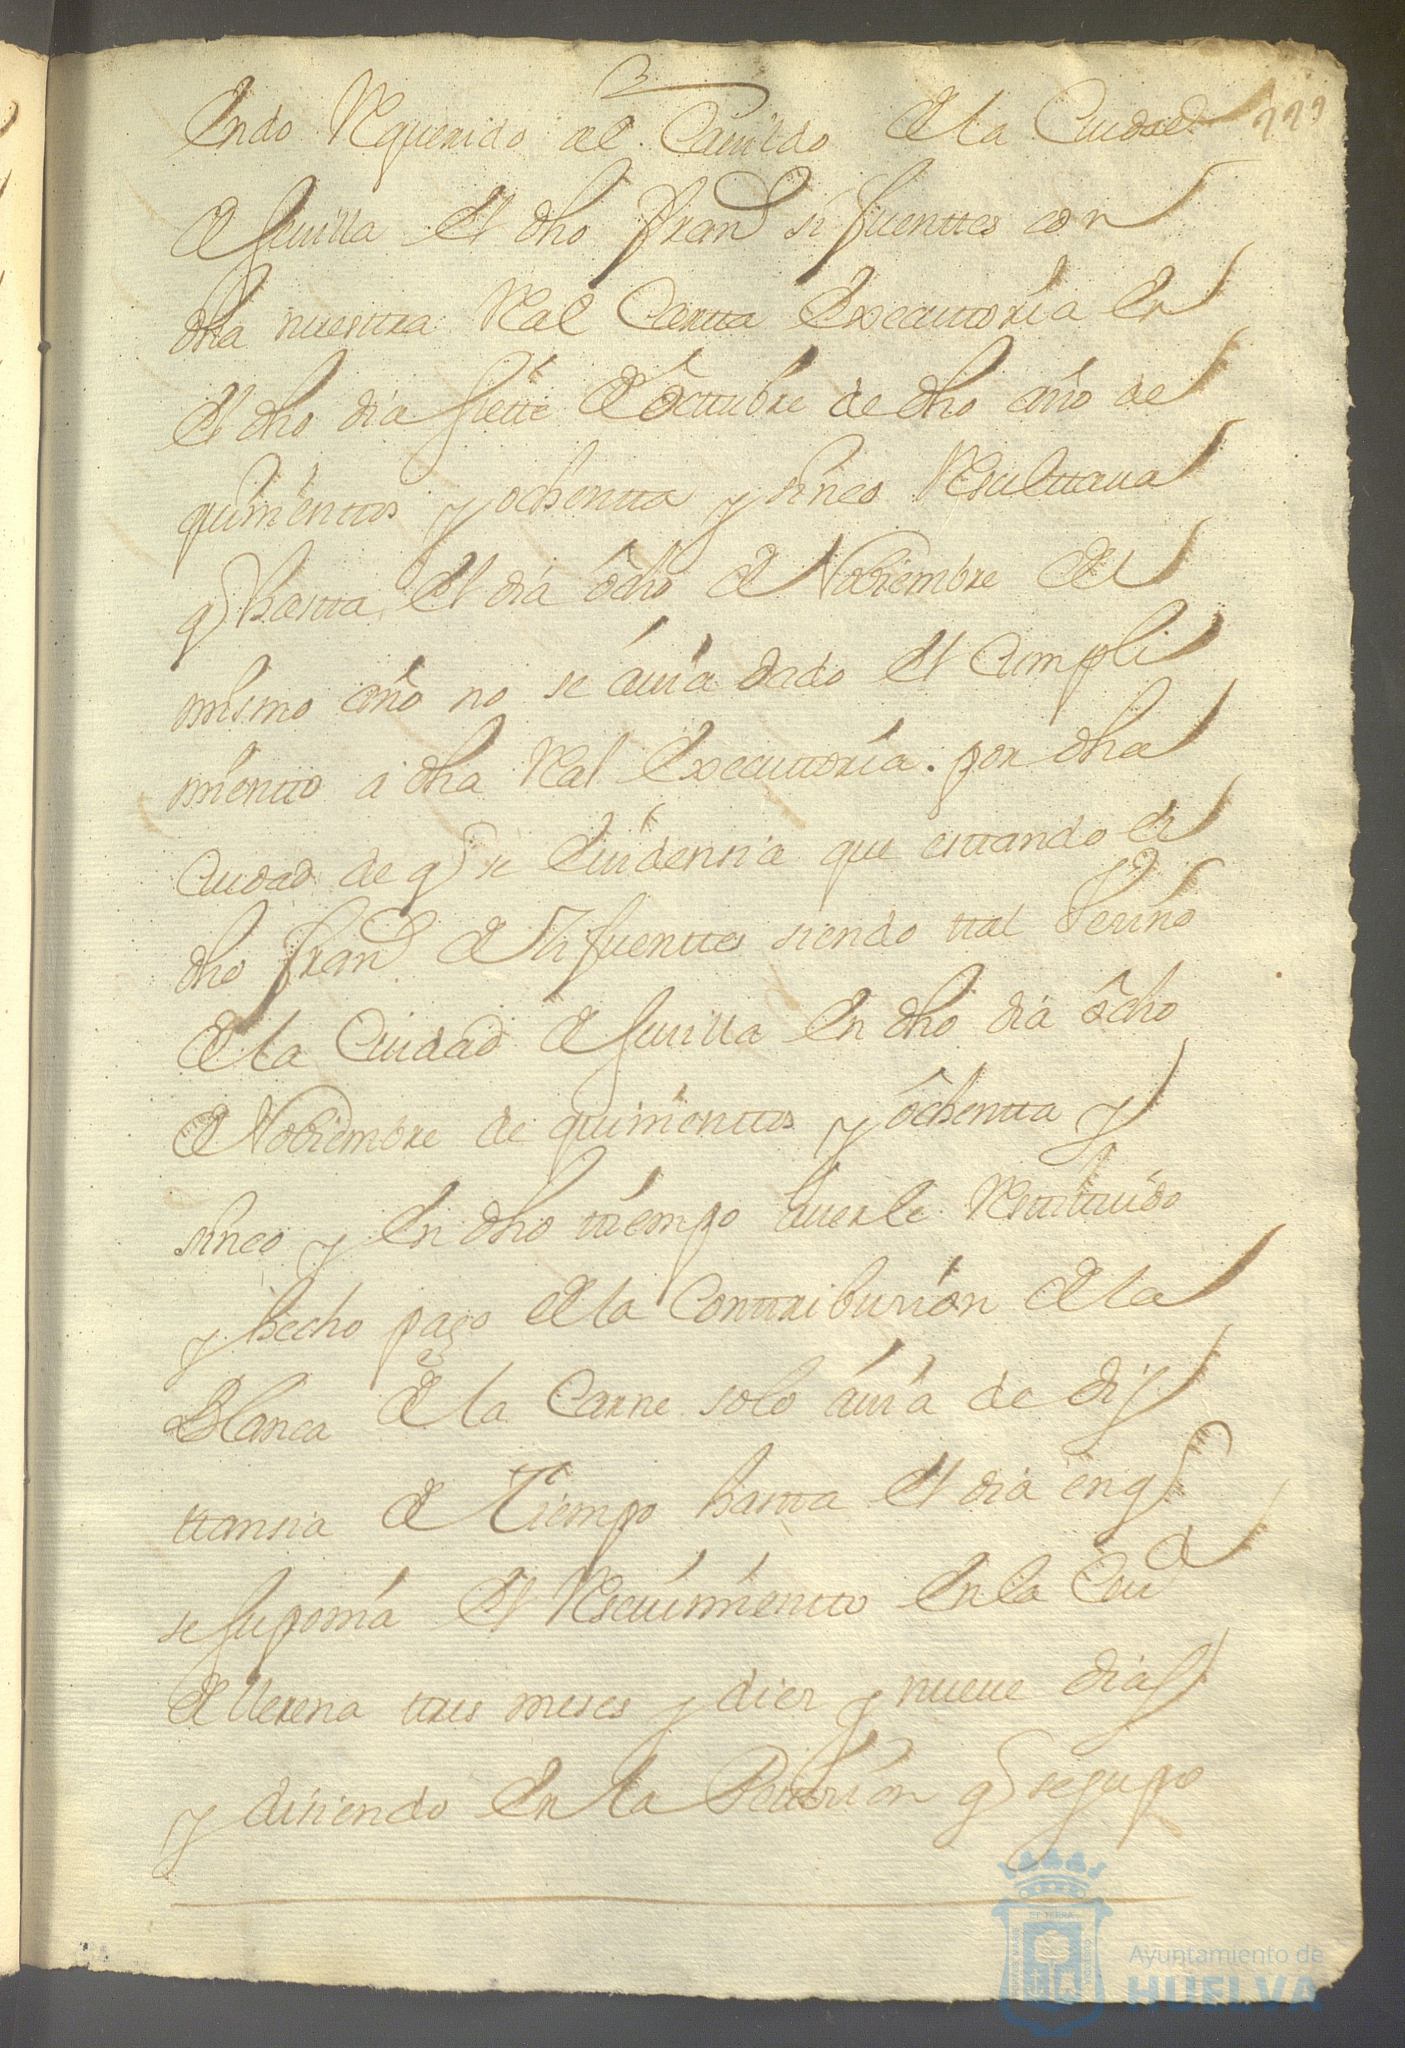 endo Requerido al Cauildo de la Ciudad 229
de seuilla el dho Fran.co sifuenttes con
dha nuestra Real Cartta executtoria en
el dho dia siette de octtubre de dho año de
quinienttos y ochentta y sinco Resulttaua
q hastta el dia ocho de Nobiembre del
mismo año no se auia dado el Cumpli
mientto a dha Real executtoria. por dha
Ciudad de q se euidensia que esttando el
dho Fran.co de sifuenttes siendo ttal Vesino
de la Ciudad de seuilla en dho dia ocho
de Nobiembre de quinienttos y ochentta y
sinco y en dho tiempo auerle Resttituido
y hecho pago de la Conttribusion de la
Blanca de la Carne solo auia de dis
ttansia de Tiempo hastta el dia en q
se suponia el Nascimientto en la Ciud
de llerena ttres meses y diez y nueue dias
y disiendo en la Pettision q se supo
Ayuntamiento de
HUELVA